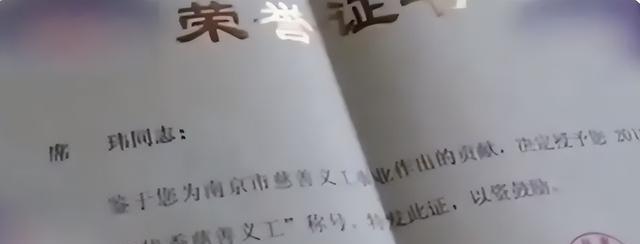 荣誉证书
席 玮同志:
鉴于您为南京市慈善义工事业作出的贡献,决定授予您 201
慈善义工”称号,特发此证,以资鼓励。